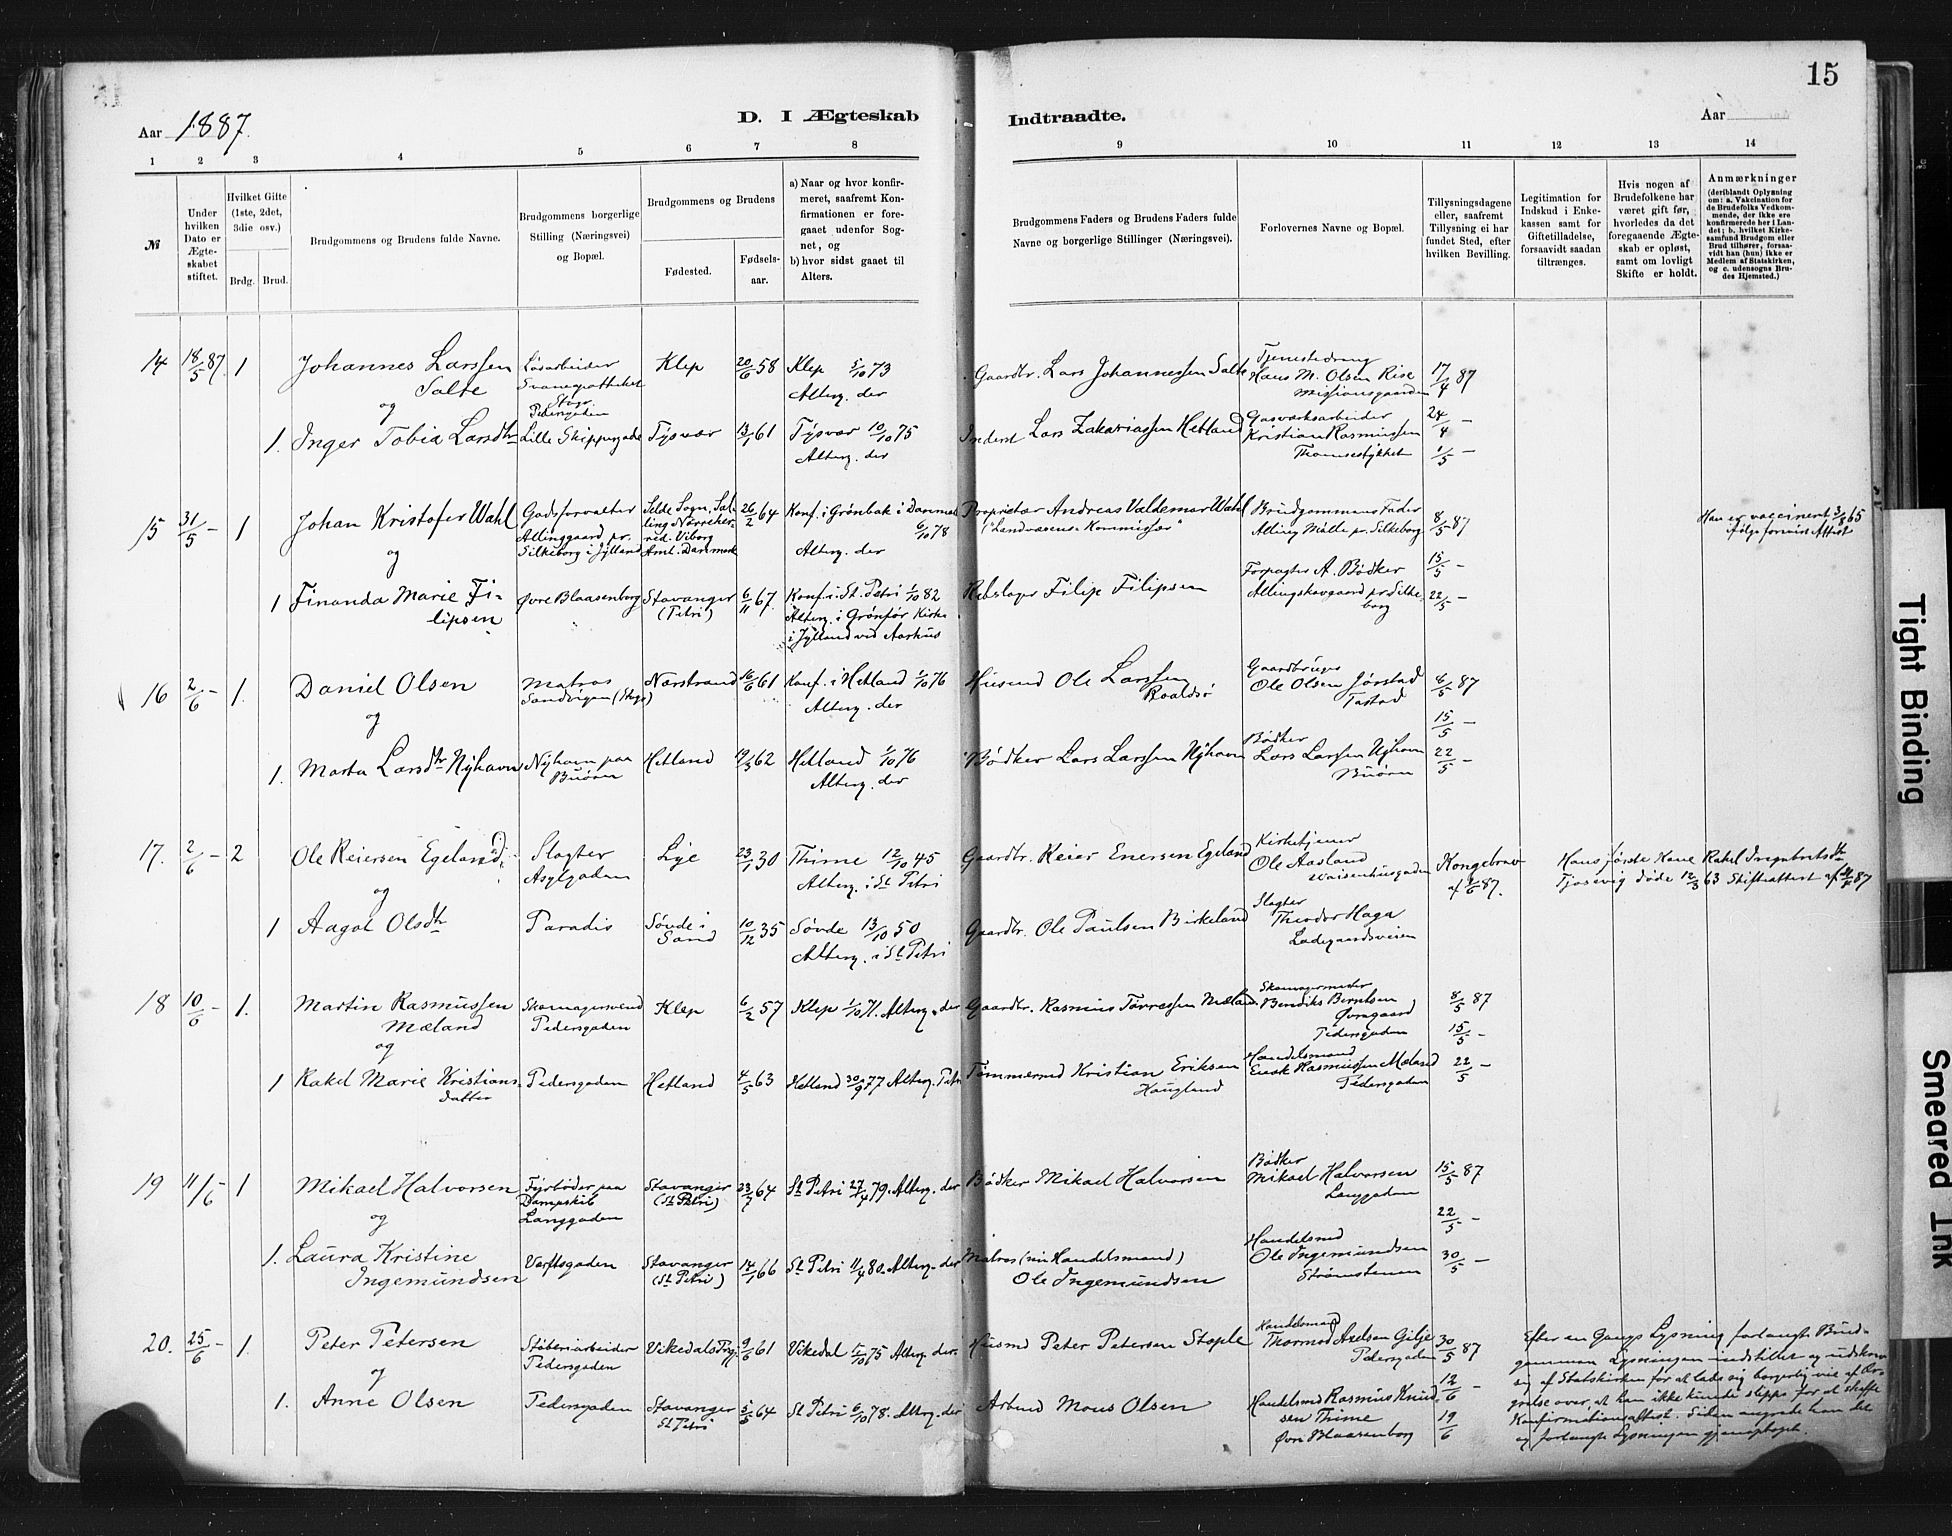 15
Aar 1887.
D. I Ægteskab Indtraadte.
Aar
1 2 3 4 5 6 7 8 9 10 11 12 13 14
№
Under hvilken Dato er Ægteskabet stiftet.
Hvilket Gifte (1ste, 2det, 3die osv.)
Brdg. Brud.
Brudgommens og Brudens fulde Navne.
Brudgommens borgerlige Stilling (Næringsvei) og Bopæl.
Brudgommens og Brudens
Fødested.
Fødselsaar.
a) Naar og hvor konfirmeret, saafremt Konfirmationen er foregaaet udenfor Sognet, og
b) hvor sidst gaaet til Alters.
Brudgommens Faders og Brudens Faders fulde Navne og borgerlige Stillinger (Næringsvei).
Forlovernes Navne og Bopæl.
Tillysningsdagene eller, saafremt Tillysning ei har fundet Sted, efter hvilken Bevilling.
Legitimation for Indskud i Enkekassen samt for Giftetilladelse, forsaavidt saadan tiltrænges.
Hvis nogen af Brudefolkene har været gift før, hvorledes da det foregaaende Ægteskab er opløst, samt om lovligt Skifte er holdt.
Anmærkninger
(deriblandt Oplysning om: a. Vakcination for de Brudefolks Vedkommende, der ikke ere konfirmerede her i Landet; b. hvilket Kirkesamfund Brudgom eller Brud tilhører, forsaavidt han (hun) ikke er Medlem af Statskirken, og c. udensogns Brudes Hjemsted.)
14 18/5 87. 1 Johannes Larssen Salte
og
Løsarbeider Pedersgaden
Klep 20/6 58 Klep 5/10 73 Alterg. der
Gaardbr. Lars Johannessen Salte
Tjenestedreng Hans M. Olsen Rise Missionsgaarden
17/4 87
1. Inger Tobia Larsdtr Lille Skippergade Tysvær 13/1 61 Tysvær 10/10 75 Alterg. der
Inderst Lars Zakariassen Hetland
Gasværksarbeider Kristian Rasmussen
24/4 –
1/5 –
15 31/5 – 1 Johan Kristofer Wahl
og
Godsforvalter Allinggaard pr. Silkeborg i Jylland
Selde Sogn, Salling Nørreherred. Viborg Amt. Danmark
26/2 64 Konf. i Grønbæk i Danmark 6/10 78
Alterg. der
Proprietær Andreas Valdemar Wahl
"Landvæsens-Kommissær"
Brudgommens Fader Alling Mølle pr. Silkeborg
8/5 87
Han er vaccineret 3/8 65 ifølge forevist Attest
1 Finanda Marie Filipsen Øvre Blaasenborg Stavanger (Petri) 6/11 67. Konf. i St. Petri 1/10 82
Alterg. i Grønfør Kirke i Jylland ved Aarhus
Rebslager Filip Filipsen
Forpagter A. Bødker Allingskovgaard pr Silkeborg
15/5 –
22/5 –
16 2/6 – 1. Daniel Olsen
og
Matros Sandvigen
Nærstrand 16/6 61 Konf. i Hetland 1/10 76 Alterg. der
Husmd Ole Larssen Roaldsø
Gaardbruger Ole Olsen Jørstad Tastad
8/5 87
15/5 –
1. Marta Larsdtr Nyhavn Nyhavn paa Buøen Hetland 19/3 62 Hetland 1/10 76 Alterg. der
Bødker Lars Larssen Nyhavn
Bødker Lars Larssen Nyhavn Buøen
22/5 –
17. 2/6 – 2 Ole Reiersen Egeland
og
Slagter Asylgaden
Lye 23/1 30 Thime 12/10 45 Alterg. i St Petri
Gaardbr. Reier Enersen Egeland
Kirketjener Ole Aasland Waisenhusgaden
Kongebrev af 1/6 87.
Hans første Kone Rakel Ingebretsdtr Tjosevig døde 12/3 63 Skifteattest af 87
1 Aagot Olsdtr Paradis Søvde i Sand 10/12 35 Søvde 13/10 50 Alterg. i St Petri
Gaardbr. Ole Paulsen Birkeland
Slagter Theodor Haga Ladegaardsveien
18 10/6 – 1. Martin Rasmussen Mæland
og
Skomagersvend Pedersgaden
Klep 6/2 57 Klep 1/10 71. Alterg. der
Gaardbr. Rasmus Tørressen Mæland
Skomagermester Bendiks Berntsen Øvregaard Pedersgaden
8/5 87
15/5 –
1 Rakel Marie Kristiansdatter Pedersgaden Hetland 4/5 63 Hetland 30/9 77 Alterg. Petri
Tømmermd Kristian Eriksen Haugland
Handelsmand Enok Rasmussen Mæland Pedersgaden
22/5 –
19 11/6 1 Mikael Halvorsen
og
Fyrbøder paa Dampskib Langgaden
Stavanger (St Petri) 23/7 64 St Petri 27/4 79. Alterg. der
Bødker Mikael Halvorsen
Bødker Mikael Halvorsen Langgaden
15/5 87
22/5 –
1. Laura Kristine Ingemundsen Værftsgaden Stavanger (St Petri) 14/1 66 St Petri 11/4 80. Alterg. der
Matros (nu Handelsmand) Ole Ingemundsen
Handelsmd Ole Ingemundsen Strømstenen
30/5 –
20. 25/6 – 1. Peter Petersen
og
Støberiarbeider Pedersgaden
Vikedal 9/6 61 Vikedal 5/10 75 Alterg. der.
Husmd Peter Petersen Stople
Handelsmand Thormod Axelsen Gilje Pedersgaden
30/5 87
12/6 –
Efter en Gangs Lysning forlangte Brudgommen Lysningen indstillet og udskrev sig af Statskirken for at lade sig borgerlig vie af Ærgrelse over, at han ikke kunde slippe for at skaffe Konfirmationsattest. Siden angrede han det og forlangte Lysningen gjenoptaget.
1. Anne Olsen Pedersgaden Stavanger St Petri 5/5 64 St Petri 6/10 78. Alterg. der
Arbmd Mons Olsen
Handelsmd Rasmus Knudsen Thime Øvre Blaasenborg
19/6
Tight Binding
Smeared Ink